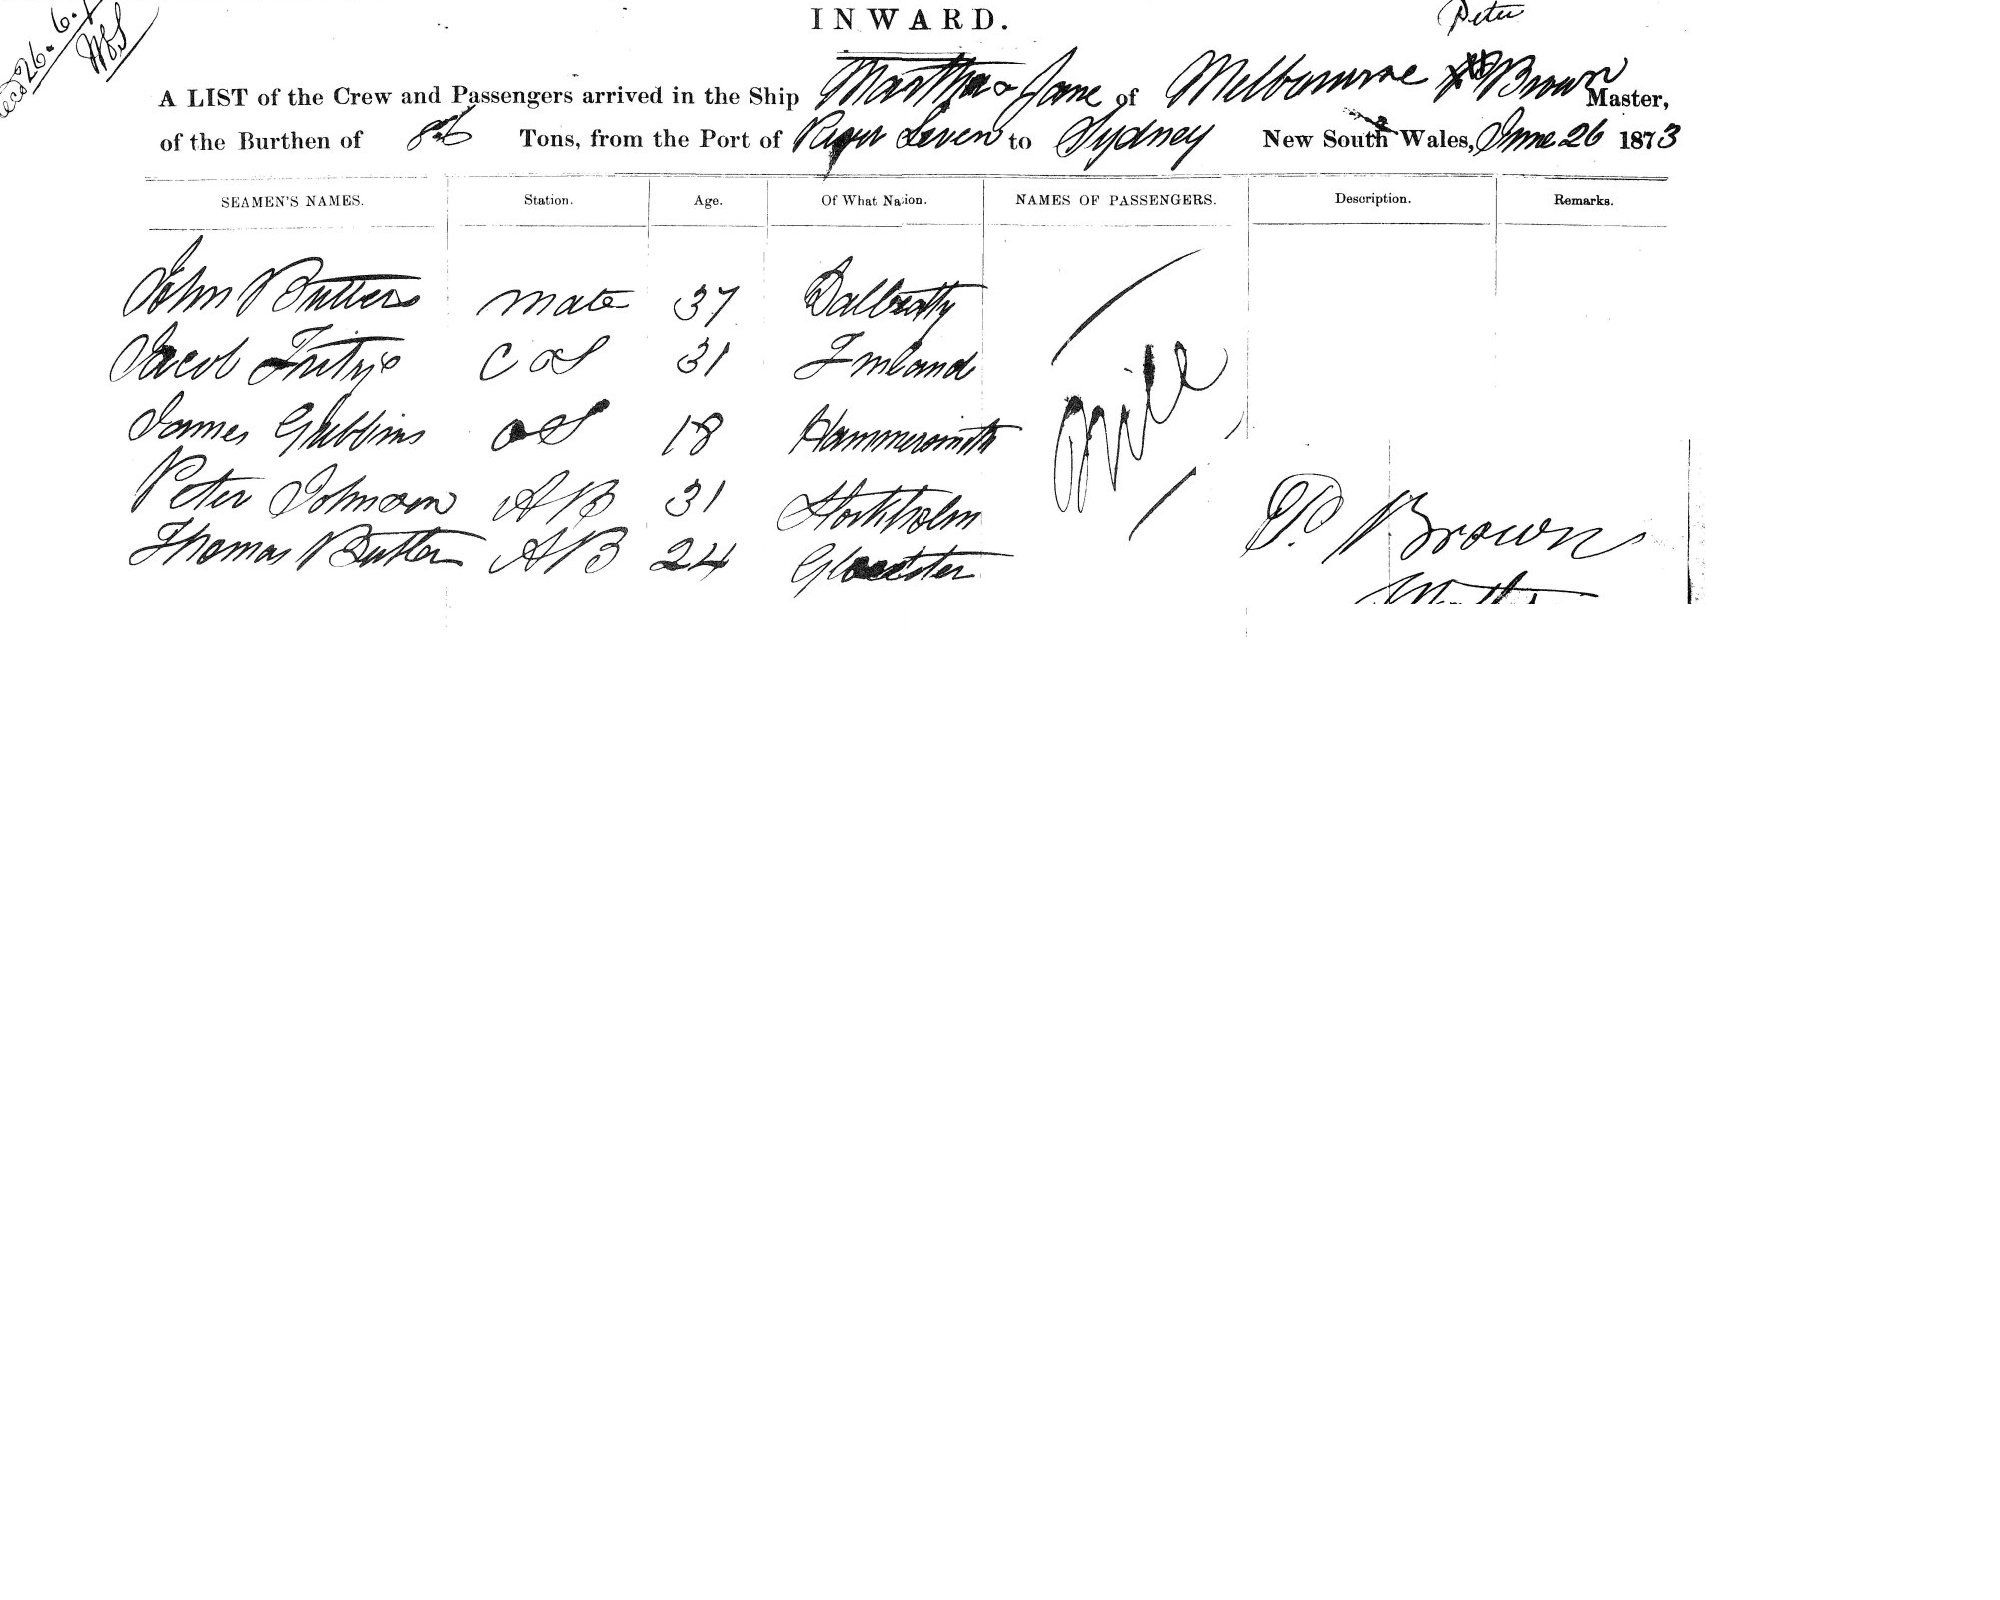 INWARD.
Peter
26.6.
A LIST of the Crew and Passengers arrived in the Ship Martha & Jane of Melbourne Brown Master,
of the Burthen of Tons, from the Port of River Leven to Sydney New South Wales, June 26 1873
SEAMEN'S NAMES. Station. Age. Of What Nation. NAMES OF PASSENGERS. Description. Remarks.
John Butters mate 37 Dalbeatty
Jacob C & S 31 Finland
James Gubbins OS 18 Hammersmith
Peter Johnson AB 31 Stockholm
Thomas Butler AB 24 Glocester
P. Brown